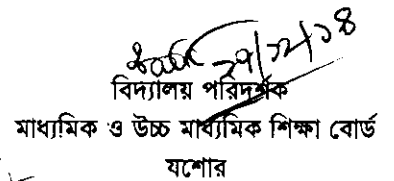 ২৭/১২/১৪
বিদ্যালয় পরিদর্শক
মাধ্যমিক ও উচ্চ মাধ্যমিক শিক্ষা বোর্ড
যশোর